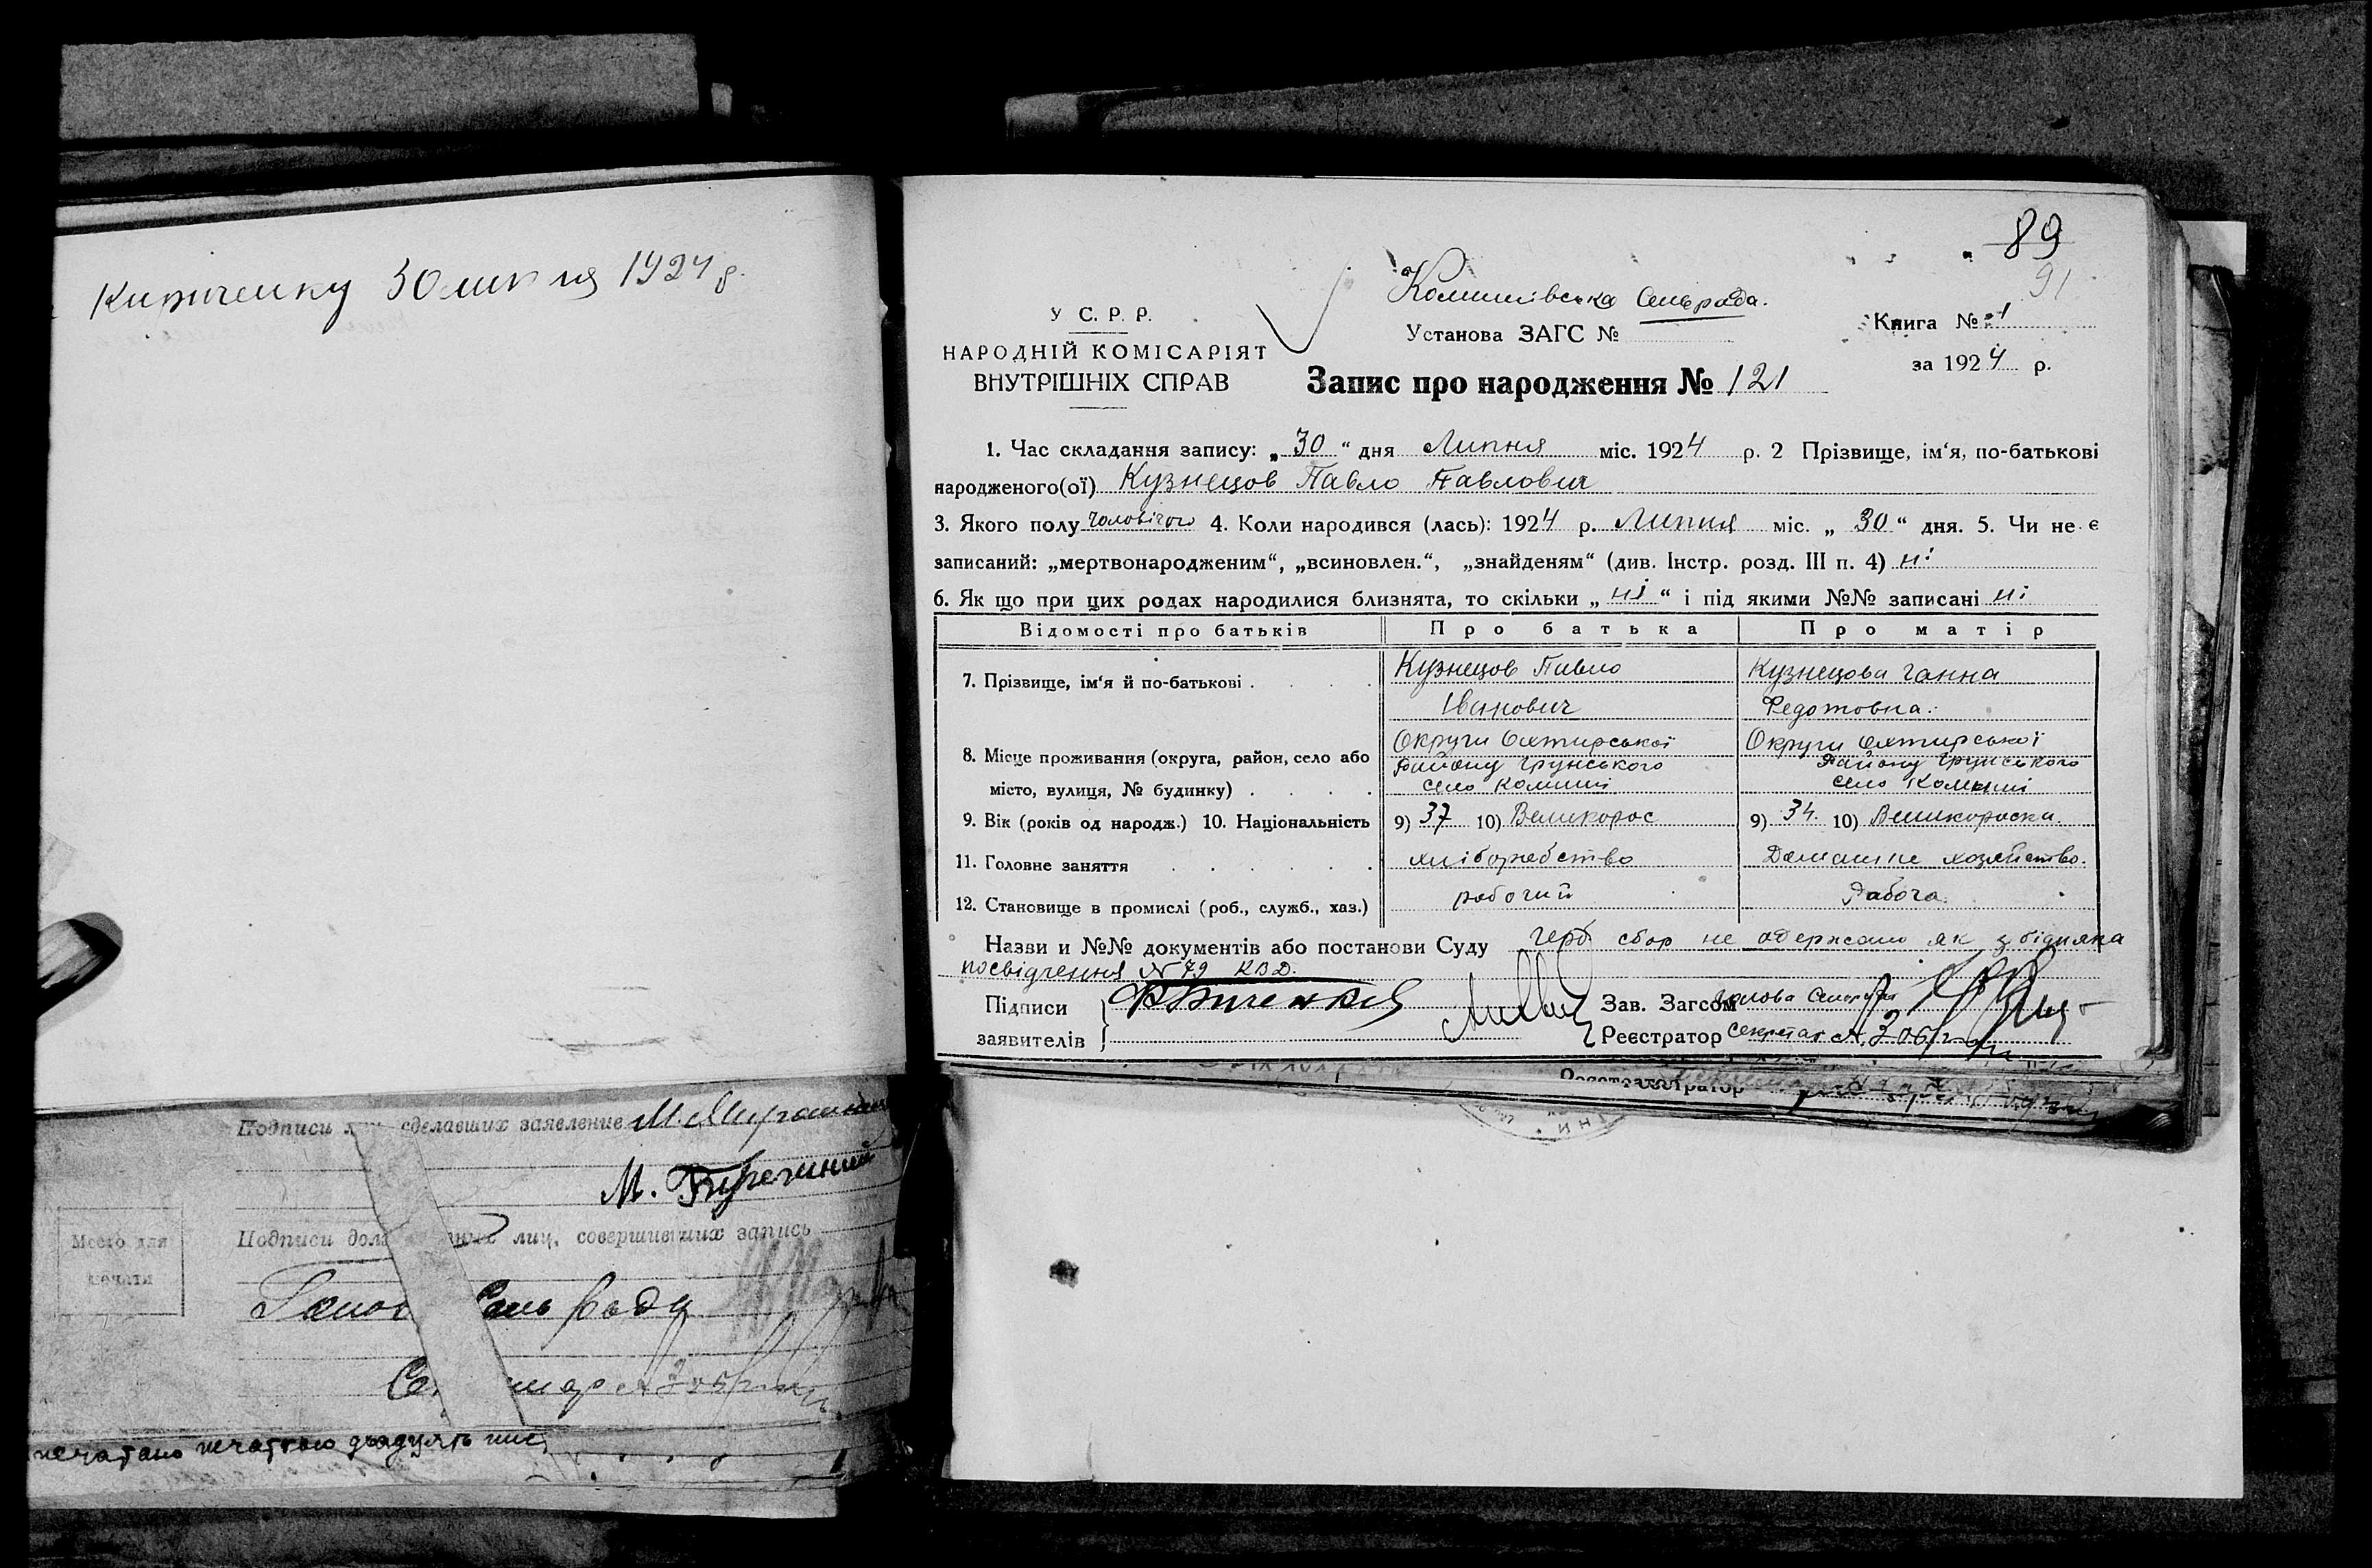 Кириченку 30 липня 1924 р.
Подписи сделавших заявление М.
М.
Место для печати
Подписи лиц, совершивших запись
Сель Рады
печатано печаткою
89
91
Комишівська Сельрада.
У С. Р. Р.
Установа ЗАГС №
Книга № 1
НАРОДНІЙ КОМІСАРІЯТ
ВНУТРІШНІХ СПРАВ
за 1924 р.
Запис про народження № 121
1. Час складання запису: „30“ дня Липня міс. 1924 р. 2 Прізвище, ім'я, по-батькові
народженого(ої) Кузнецов Павло Павлович
3. Якого полу чоловічого 4. Коли народився (лась): 1924 р. Липня міс. „30“ дня. 5. Чи не є
записаний: „мертвонародженим“, „всиновлен.“, „знайденям“ (див. Інстр. розд. III п. 4) ні
6. Як що при цих родах народилися близнята, то скільки „ні“ і під якими №№ записані ні
Відомості про батьків Про батька Про матір
7. Прізвище, ім'я й по-батькові . Кузнецов Павло Іванович Кузнецова Ганна Федотовна.
8. Місце проживання (округа, район, село або
місто, вулиця, № будинку) . Округи Охтирської Району Грунського село Комиші Округи Охтирської Району Грунського село Комиші
9. Вік (років од народж.) 10. Національність 9) 37 10) Великорос 9) 34 10) Великороска.
11. Головне заняття хліборобство Домашне хозяйство.
12. Становище в промислі (роб., служб., хаз.) робочий Рабоча.
Назви и №№ документів або постанови Суду Герб сбор не одержано як з бідняка
посвідчення № 79 КВД.
Підписи
заявителів
Зав. Загсом Голова Сельради
Реєстратор Секретар